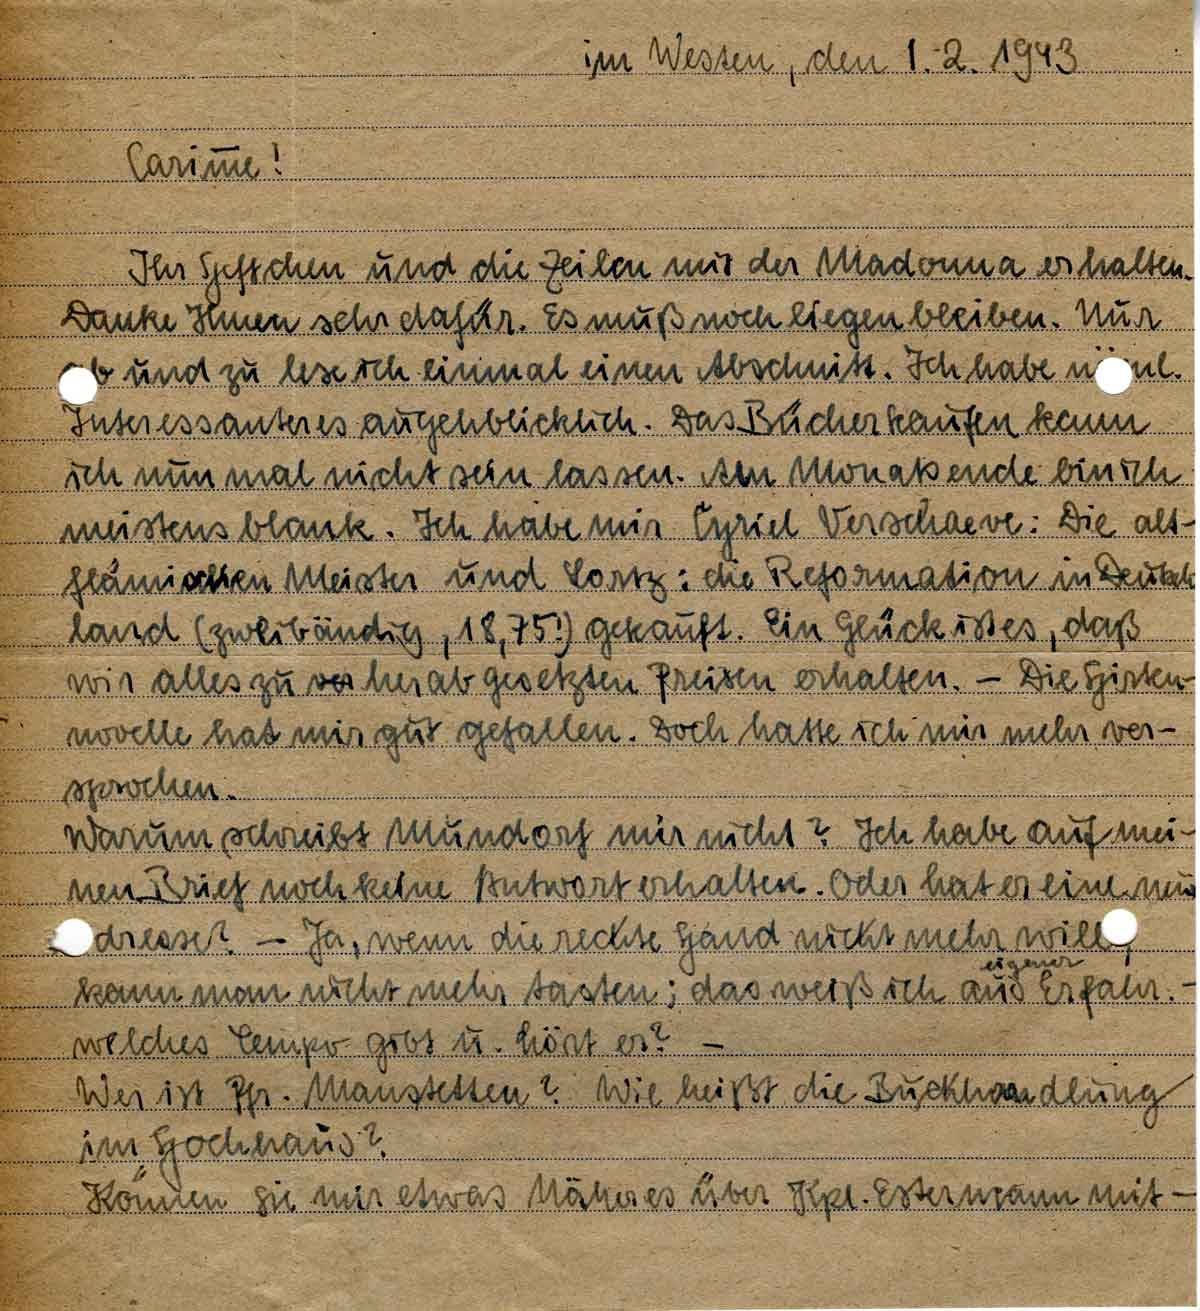 im Westen, den 1.2.1943
Carim̅e!
Ihr Heftchen und die Zeilen mit der Madonna erhalten.
Danke Ihnen sehr dafür. Es muß noch liegen bleiben. Nur
ab und zu lese ich einmal einen Abschnitt. Ich habe näml.
Interessanteres augenblicklich. Das Bücherkaufen kann
ich nun mal nicht sein lassen. Am Monatsende bin ich
meistens blank. Ich habe mir Cyriel Verschaeve: Die alt-
flämischen Meister und Lortz: die Reformation in Deutsch-
land (zweibändig, 18,75!) gekauft. Ein Glück ist es, daß
wir alles zu herabgesetzten Preisen erhalten. – Die Hirten-
novelle hat mir gut gefallen. Doch hatte ich mir mehr ver-
sprochen.
Warum schreibt Mundorf mir nicht? Ich habe auf mei-
nen Brief noch keine Antwort erhalten. Oder hat er eine neue
Adresse? – Ja, wenn die rechte Hand nicht mehr will,
kann man nicht mehr tasten; das weiß ich aus eigener Erfahr. –
welches Tempo gibt u. hört er? –
Wer ist Pfr. Manstetten? Wie heißt die Buchhandlung
im Hochhaus?
Können Sie mir etwas Näheres über Kpl. Estermann mit-